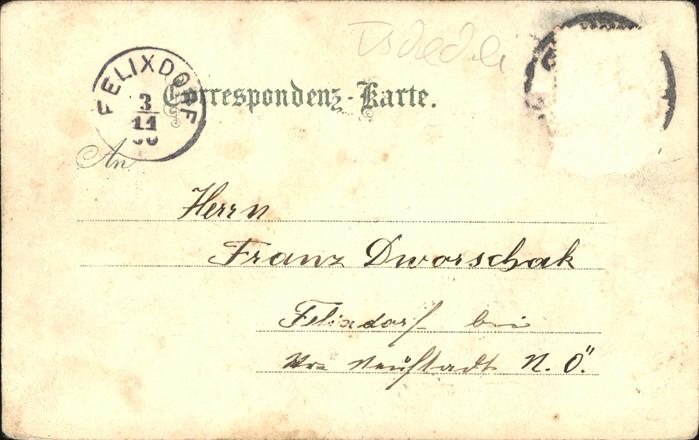 FELIXDORF
3
11
Correspondenz-Karte.
An
Herrn
Franz Dworschak
Felixdorf bei
Wr. Neustadt N. Ö.